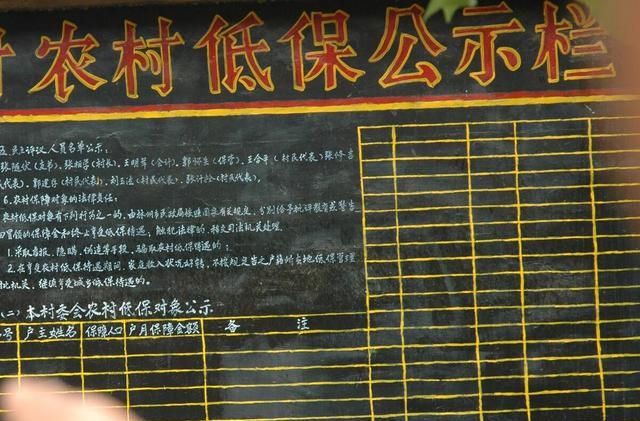 农村低保公示栏
五、民主评议人员名单公示:
张随伏(支书)、张相学(村长)、王明芹(会计)、郭怀生(保管)、王合平(村民代表)张修吉
民代表)、郭建存(村民代表)、刘玉法(村民代表)、张计拴(村民代表)。
6.农村保障对象的法律责任:
农村低保对象有下列行为之一的,由林州市民政局按照国家有关规定,分别给予批评教育或警告
回冒领的保障金和终止享受低保待遇;触犯法律的,移交司法机关处理。
1.采取虚报、隐瞒、伪造等手段,骗取农村低保待遇的;
2.在享受农村低保待遇期间,家庭收入状况好转,不按规定告之户籍所在地低保管理
批机关,继续享受城乡低保待遇的。
(二)本村委会农村低保对象公示
号 户主姓名 保障人口 户月保障金额 备 注